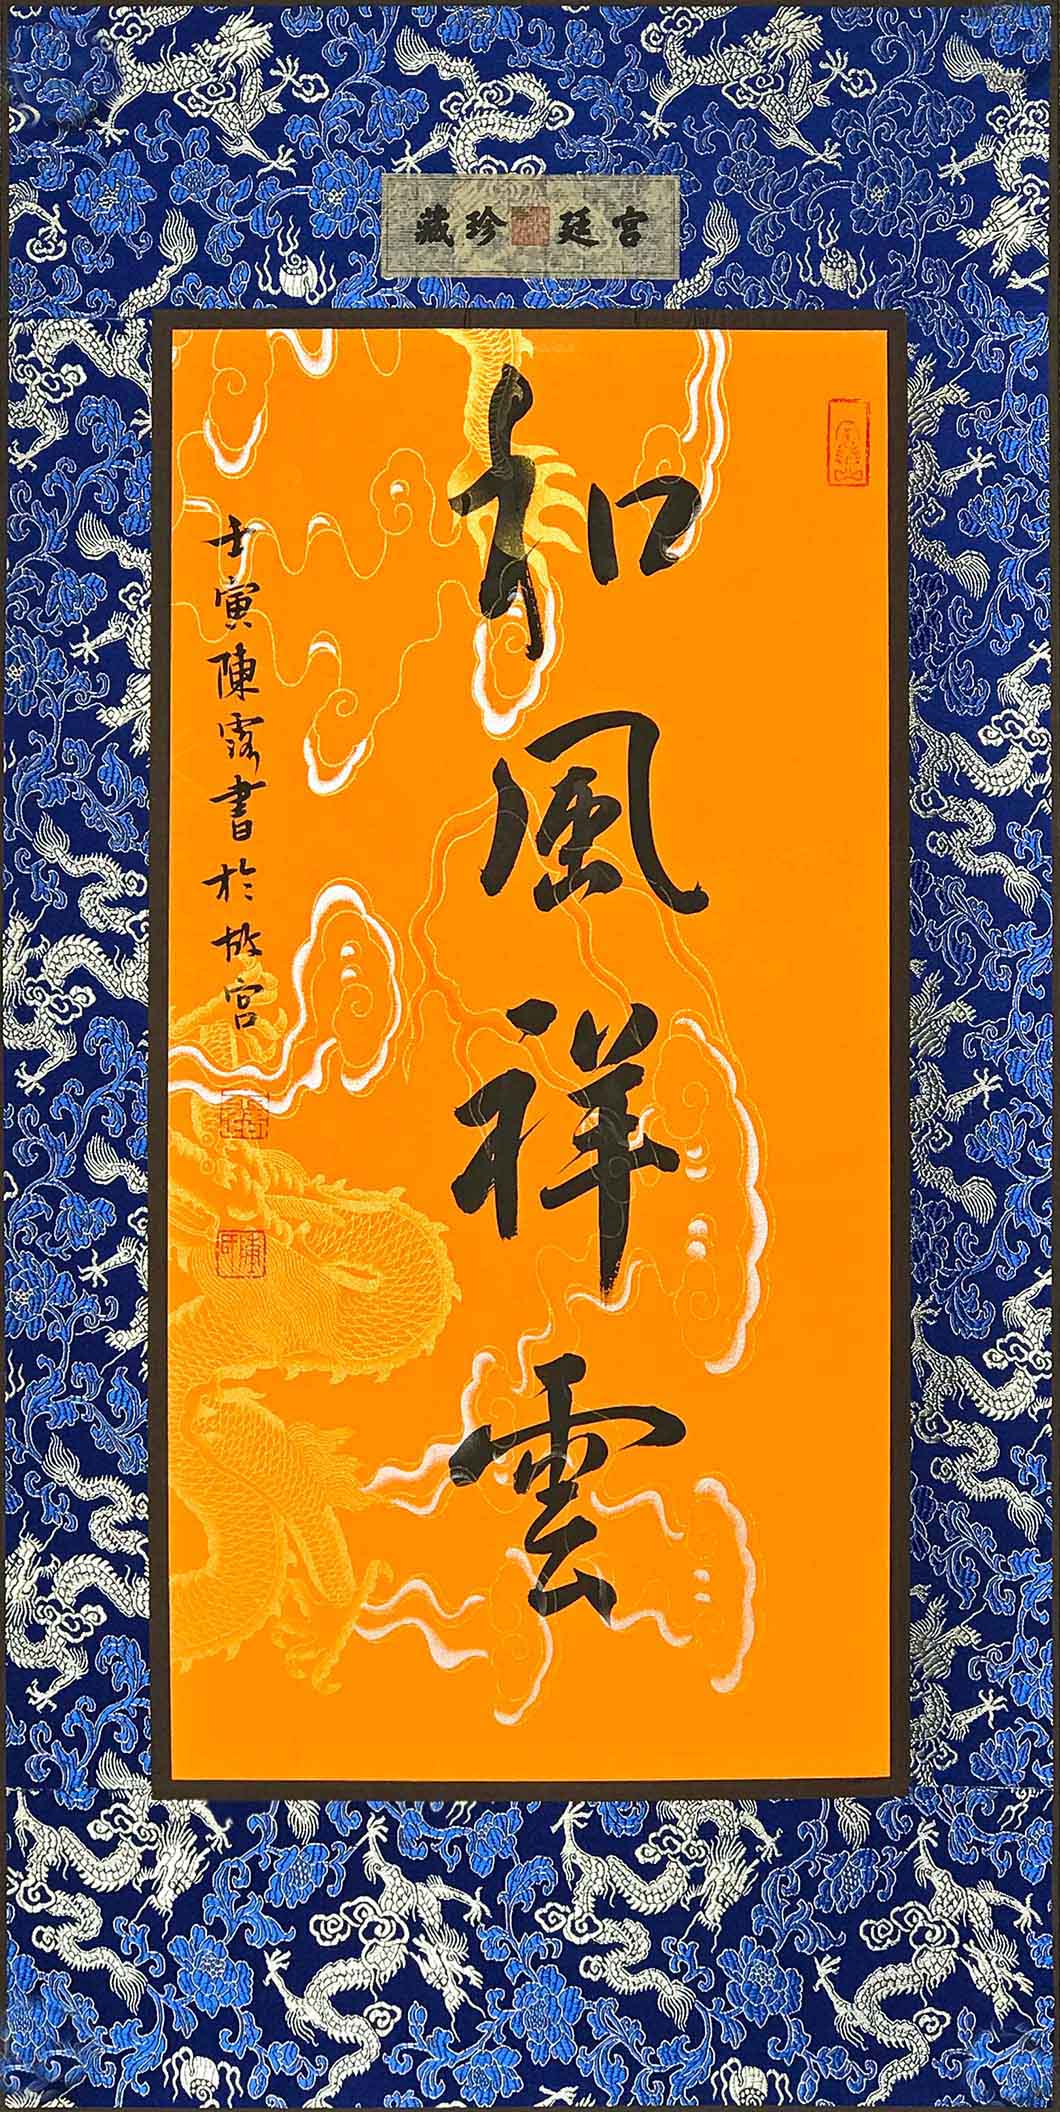 宮廷珍藏
和風祥雲
壬寅陳露書於故宮